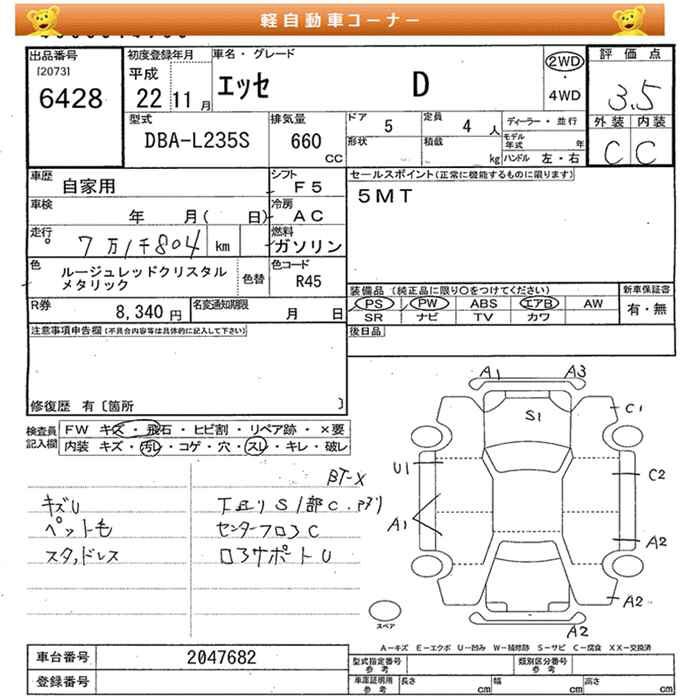 軽自動車コーナー
出品番号
[2073]
6428
初度登録年月
平成
22 11 月
車名・グレード
エッセ D
2WD
・
4WD
評価点
3.5
外装 内装
C C
型式
DBA-L235S
排気量
660
CC
ドア
5
定員
4 人
形状
積載
kg
ディーラー・並行
モデル
年式 年
ハンドル 左・右
車歴
自家用
シフト
F5
セールスポイント(正常に機能するものに限ります)
5MT
車検
年 月( 日)
冷房
AC
走行
7万1千804 km
燃料
ガソリン
色
ルージュレッドクリスタル
メタリック
色替
色コード
R45
装備品 (純正品に限り○をつけてください)
PS PW ABS エアB AW
SR ナビ TV カワ
新車保証書
有・無
R券
8,340 円
名変通知期限
月 日
後日品
注意事項申告欄(不具合内容等は具体的に記入して下さい)
修復歴 有〔箇所 〕
検査員
記入欄
FW キズ・飛石・ヒビ割・リペア跡・×要
内装 キズ・汚レ・コゲ・穴・スレ・キレ・破レ
BT-X
キズU
ペット毛
スタッドレス
下廻りS1部C.
センターフロアC
ロアサポートU
A1 A3
S1
C1
U1
C2
A1
A2
A2
A2
スペア
A－キズ E－エクボ U－凹み W－補修跡 S－サビ C－腐食 XX－交換済
車台番号
2047682
登録番号
型式指定番号
参考
類別区分番号
参考
車庫証明用
参考
長さ cm
幅 cm
高さ cm